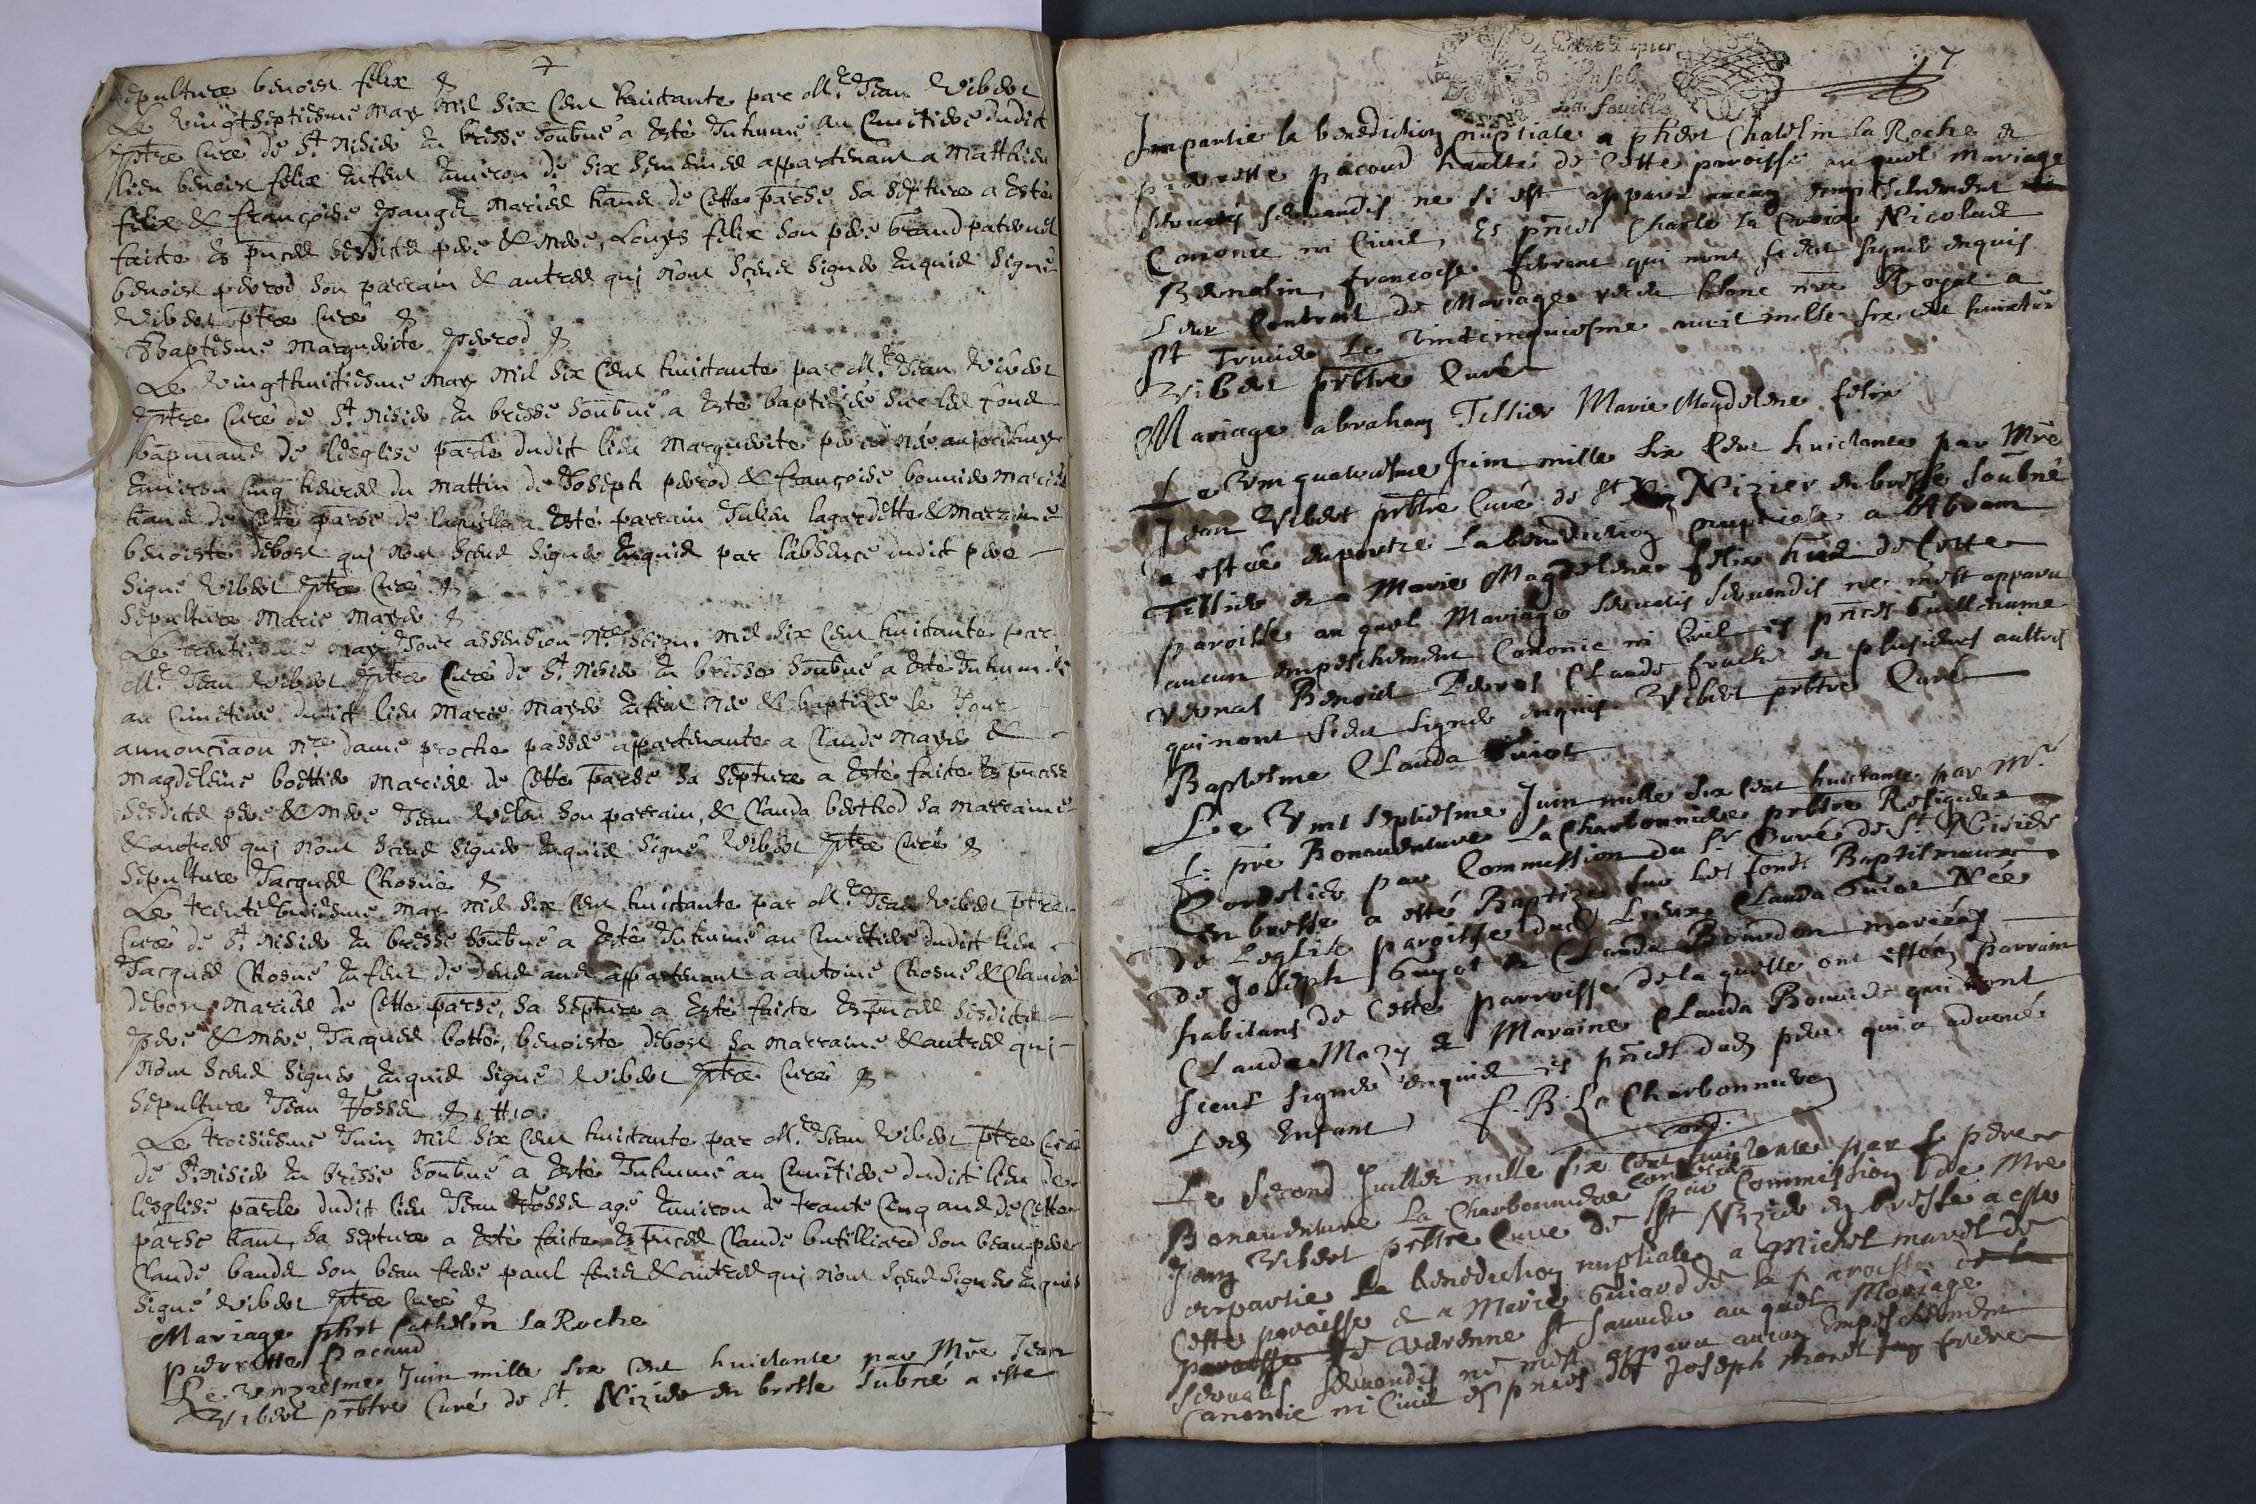 Sepulture benoist felix
Le vingtseptiesme may mil six cent huictante par Mre Jean Viber
ptre curé de St Nisier en bresse soubné a esté inhumé au cimetiere dudict
lieu benoist felix enfent environ de six semenes appartenant a Matthieu
felix & françoise mariés hans de cette parsse sa septure a esté
faicte es pnces sesdicts pere & mere, Louys felix son pere grand paternel
benoist perrod son parrain & autres qui nont sceus signer enquis signé
Viber ptre curé
Baptesme Marguerite perrod
Le vingthuictiesme may mil six cent huictante par Mre Jean Viber
ptre curé de St Nisier en bresse soubné a esté baptizée sur les fons
bapmaux de lesglise parle dudict lieu Marguerite née aujourdhuy
environ cinq heures du mattin de Joseph perrod & françoise bonnier mariés
hans de cette parsse de laquelle a esté parrain Julien lagardette & marraine
benoiste debost qui nont sceus signer enquis par labsence dudict pere
signé Viber ptre curé
Sepulture Marie Mayer
Le trentiesme may Jour assension Nre Seigr mil six cent huictante par
Mre Jean Viber ptre curé de St Nisier en bresse soubné a esté inhumée
au cimetiere dudict lieu Marie Mayer enfent née & baptizée le Jour
annonciaon Nre dame proche passée appartenante a Claude Mayer &
Magdeleine boettier mariés de cette parsse sa septure a esté faicte es pnces
sesdicts pere & mere Jean son parrain, & Clauda berthod sa marraine
& autres qui nont sceus signer enquis signé Viber ptre curé
Sepulture Jacques Chosné
Le trente uniesme may mil six cent huictante par Mre Jean Viber ptre
curé de St Nisier en bresse soubné a esté inhumé au cimetiere dudict lieu
Jacques Chosné enfent de deux ans appartenant a antoine Chosné & Clauda
debost mariés de cette parsse, sa septure a esté faicte es pnces sesdicts
pere & mere, Jacques botté, benoiste debost sa marraine & autres qui
nont sceus signer enquis signé Viber ptre curé
Sepulture Jean Vosse
Le troisiesme Juin mil six cent huictante par Mre Jean Viber ptre curé
de St Nisier en bresse soubné a esté inhumé au cimetiere dudict lieu de
lesglise parle dudict lieu Jean Vosse agé environ de trante cinq ans de cette
parsse hant, sa septure a esté faicte es pnces Claude butilliard son beau pere
Claude bauds son beau frere paul & autres qui nont sceus signer enquis
signé Viber ptre curé
Mariage phet Cathelin LaRoche
pierrette pacaud
Le Juin mille six cent huictante par Mre Jean
Vibert prbtre Curé de St. Nizier en bresse subné a este
7
Petit Papier
La feuille
Impartie la benediction nuptiale a phet Chatelin la Roche et
pierrette pacaud hants de cette paroisse auquel mariage
servatis servandis ne si est apparu aucun empeschement
Canonic ni Civil, Es pnces Charle la Croix Nicolas
Bernolin, francoise qui nont sceu signer enquis
Leur Contrait de Mariage receu nre Royal a
St Trivier Le vintcinquiesme avril mille six cent huictante
Vibert prbtre Curé
Mariage abraham Tissier Marie Magdelene felix
Le Vin quatriesme Juin mille six cent huictante par Mre
Jean Vibert prbtre Curé de St Nizier en bresse soubné
a estée impartie la benediction nuptiale a Abram
Tissier et a Marie Magdelene felix hans de Cette
paroisse au quel Mariage servatis servandis ne mest apparu
aucun empeschement Canonic ni Civil es pnces Guillaume
Benoist Perrot Claude et plusieurs aultres
qui nont sceu signer enquis. Vibert prbtre Curé
Baptesme Clauda Guiot
Le Vint septiesme Juin mille six cent huictante par Mre
f. pre Bonaventure La Charbonniere prbtre Religieux
Cordelier par Commission du Sr Curé de St Nisier
En bresse a esté Baptizée sur les fonts Baptismaux
de Leglise paroisse dud Lieux Clauda Guiot Née
de Joseph Guyot et Clauda Bourdon mariées
habitans de Cette parroisse de la quelle ont estéez parrain
Claude Mazy et Maraine Clauda Bouvier qui nont
sceut signer enquis es pnces dud pere qui a advoué
Led Enfant f. B. La Charbonniere
cord.
Le second Juillet mille six cent huictante par f pere
Bonaventure la Charbonniere cordelier par Commission de Mre
Jean Vibert prbtre Cure de St Nizier en bresse a este
impartie la benediction nuptiale a Michel maret de
Cette paroisse & a Marie Guiard de la paroisse de la
paroisse de Varenne St Sauveur au quel Mariage
servatis servandis ne mest apparu aucun Empeschement
Canonic ni Civil es pnces de Joseph maret frere